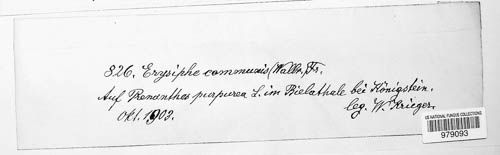 826. Erysiphe communis (Wallr.) Fr.
Auf Prenanthes purpurea L. im Bielathale bei Königstein.
Okt. 1902. leg. W. Krieger.
US NATIONAL FUNGUS COLLECTIONS
979093